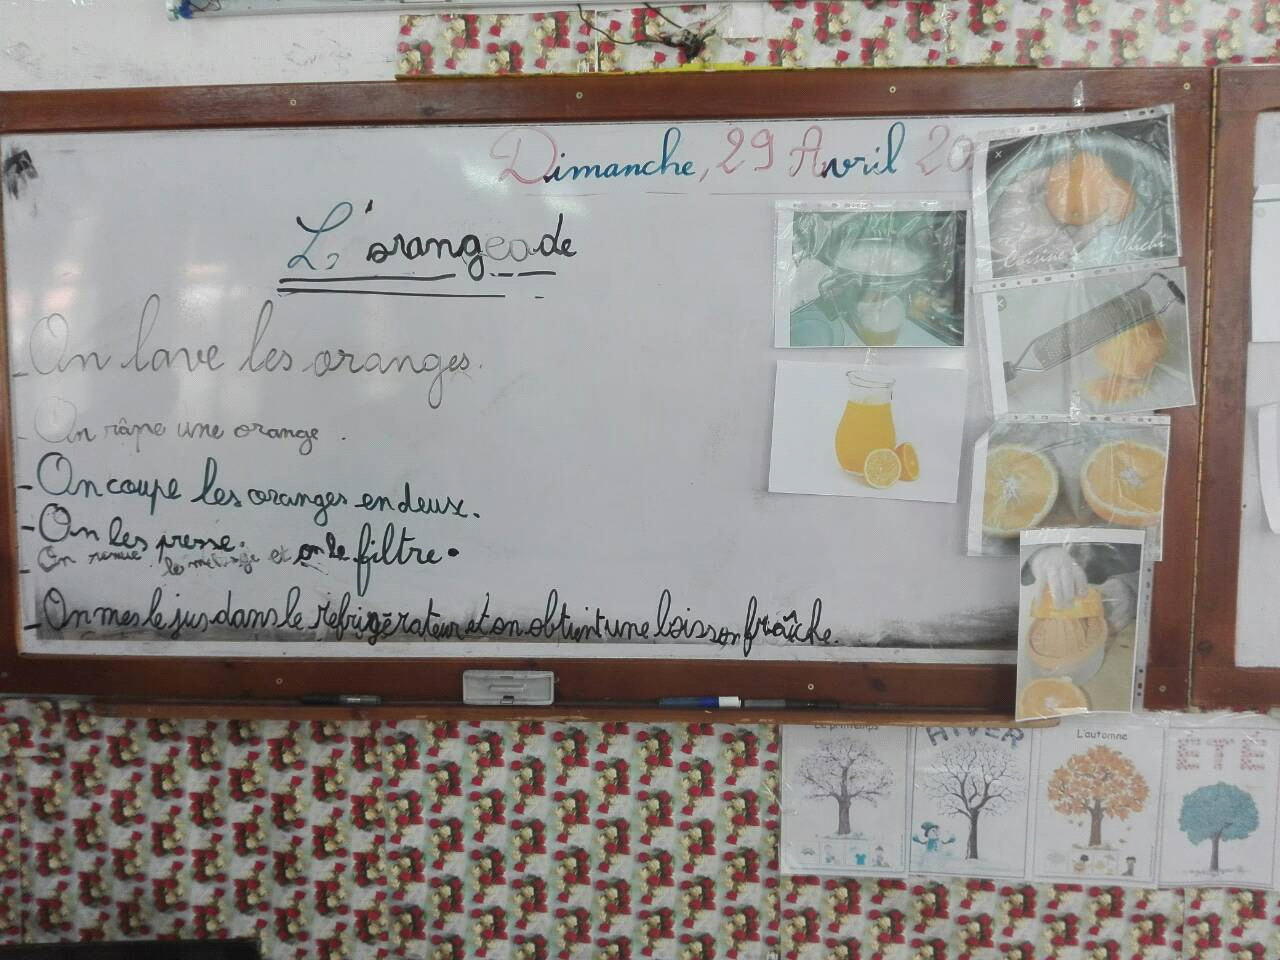 Dimanche, 29 Avril 20
L'orangeade
Cuisine Chichi
- On lave les oranges.
- On râpe une orange.
- On coupe les oranges en deux.
- On les presse.
- On remue le mélange et on le filtre.
- On mes le jus dans le refrigérateur et on obtient une boisson fraîche.
Le printemps
HIVER
L'automne
ÉTÉ